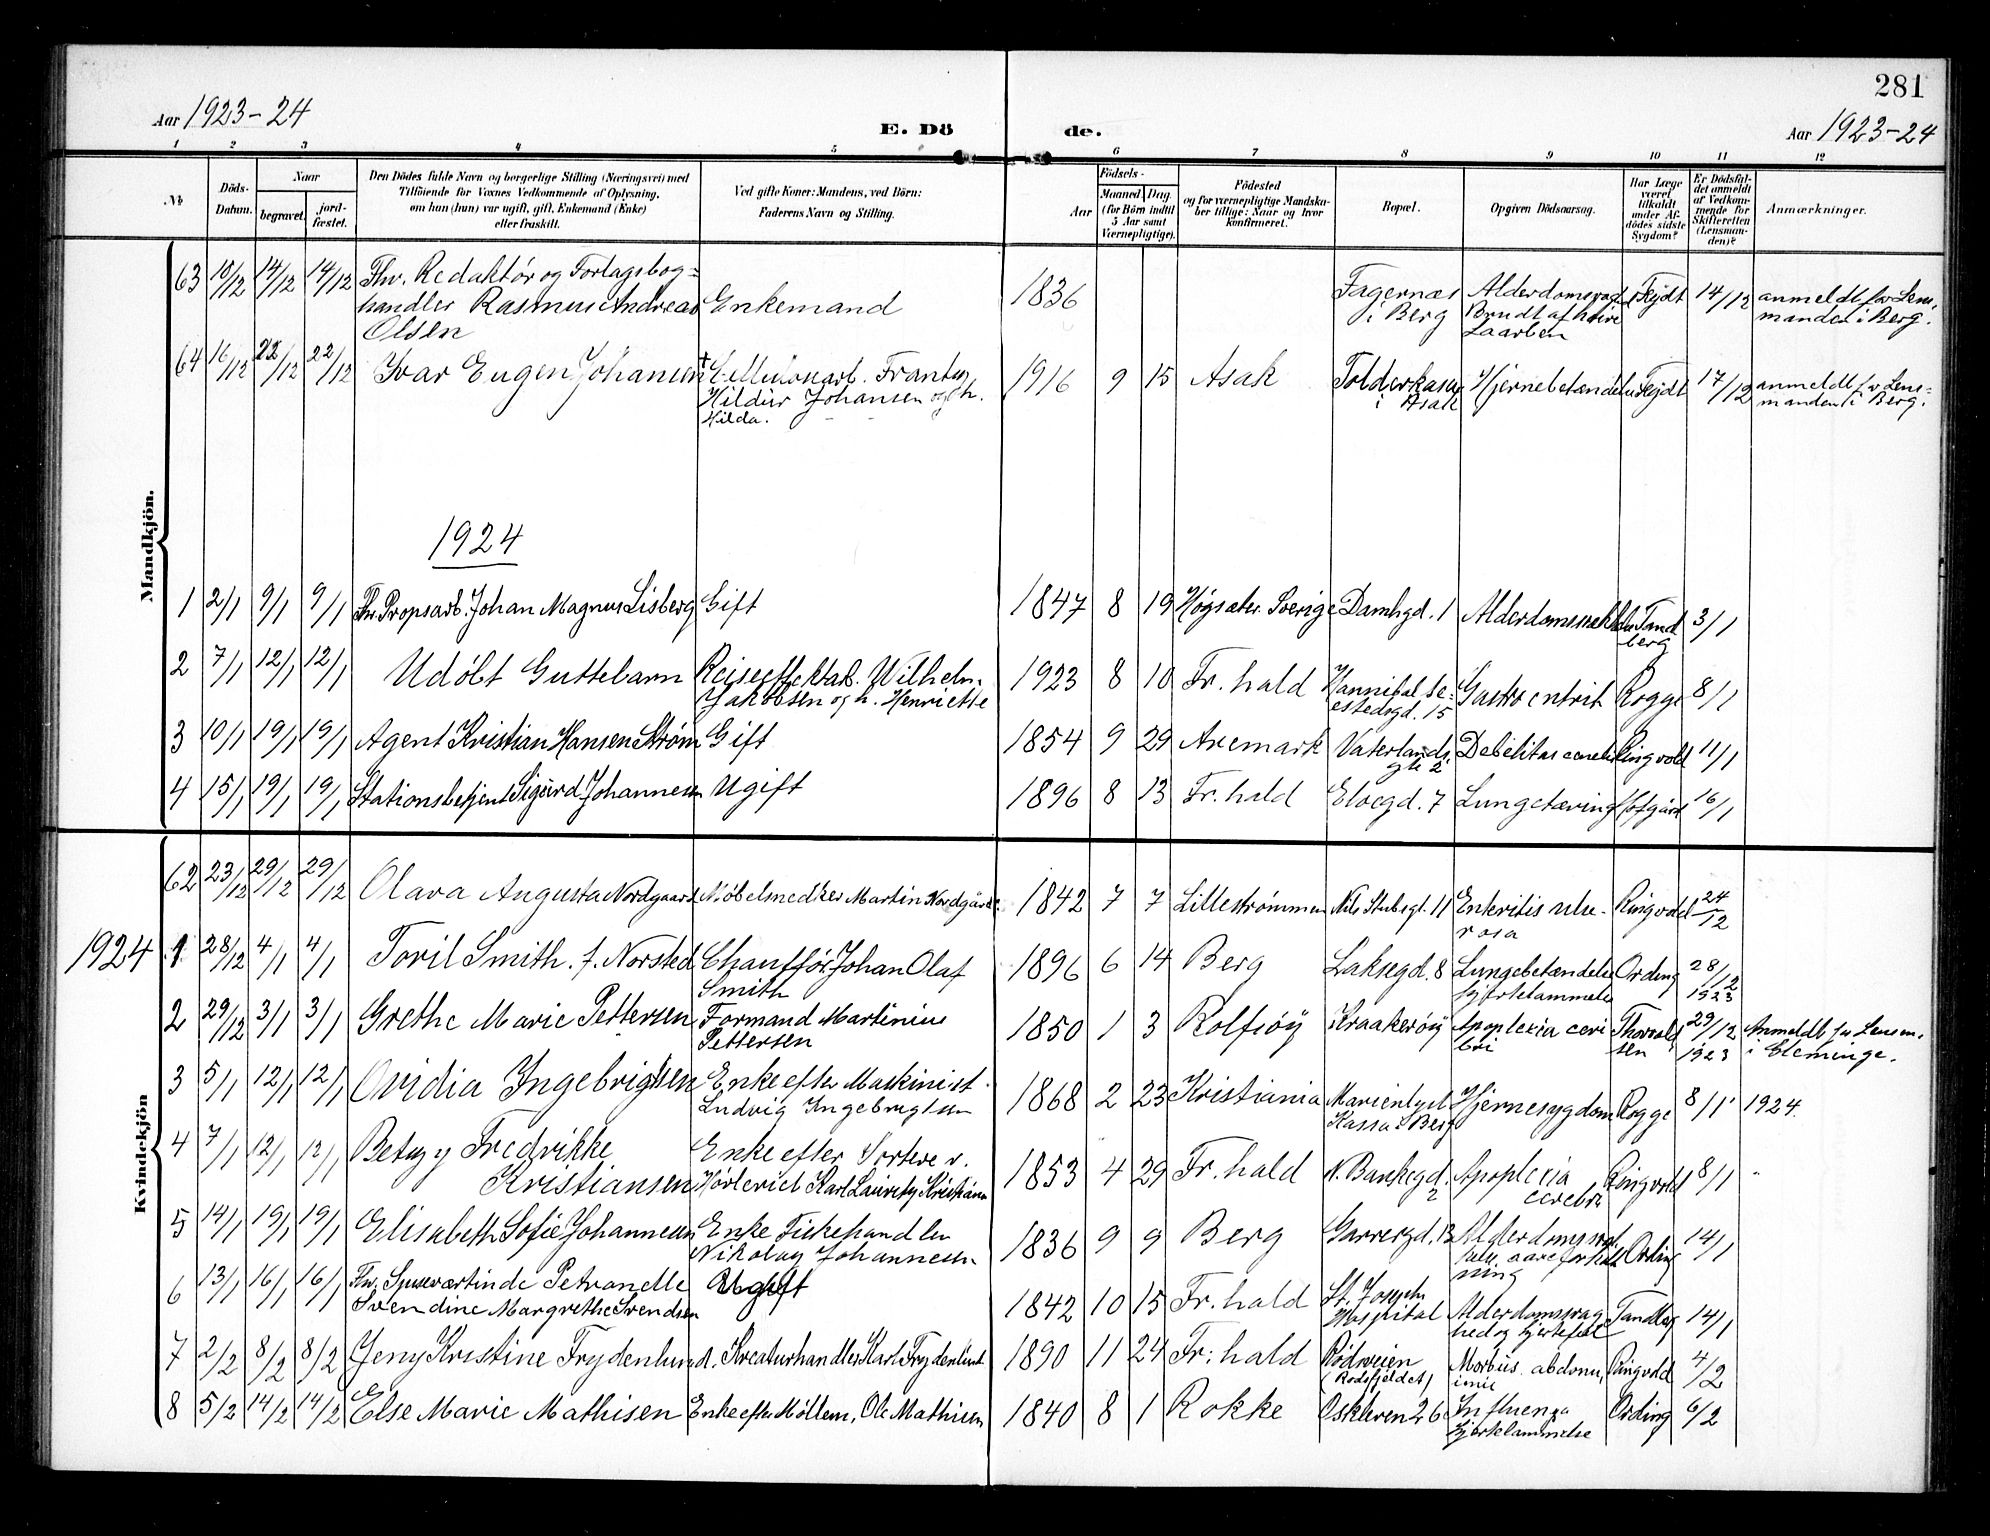 281
Aar 1923-24
E. Dö
de.
Aar 1923-24
1 2 3 4 5 6 7 8 9 10 11 12
No
Döds-
Datum.
Naar
begravet.
jord-
fæstet.
Den Dödes fulde Navn og borgerlige Stilling (Næringsvei) med
Tilföiende for Voxnes Vedkommende af Oplysning,
om han (hun) var ugift, gift, Enkemand (Enke)
eller fraskilt.
Ved gifte Koner: Mandens, ved Börn:
Faderens Navn og Stilling.
Födsels-
Aar
Maaned Dag.
(for Börn indtil
5 Aar samt
Værnepligtige).
Födested
og for værnepligtige Mandska-
ber tillige: Naar og hvor
konfirmeret.
Bopæl.
Opgiven Dödsaarsag.
Har Læge
været
tilkaldt
under Af-
dödes sidste
Sygdom?
Er Dödsfal-
det anmeldt
af Vedkom-
mende for
Skifteretten
(Lensman-
den)?
Anmærkninger.
Mandkjön.
63 10/12 14/12 14/12 Fhv. Redaktør og Forlagsbog-
handler Rasmus Andreas
Olsen
Enkemand 1836
Fagernæs
i Berg
Alderdomssvagh
Brudt af høire
Laarben
Fejdt 14/12
anmeldt for Lens-
manden i Berg.
64 16/12 22/12 22/12 Ivar Eugen Johansen
Cellulosearb. Frantz
Hildur Johansen og h.
Hilda.
1916 9 15 Asak
Folderkasa
i Asak
Hjernebetændelse Fejdt 17/12
anmeldt f. Lens-
manden i Berg.
1924
1 2/1 9/1 9/1 Fhv. Propsarb. Johan Magnus Lisberg Gift 1847 8 19 Høgsæter Sverige Damhgd. 1 Alderdomssvækkelse Tand
berg 3/1
2 7/1 12/1 12/1 Udøbt Guttebarn
Reiseeffektak. Wilhelm
Jakobsen og h. Henriette
1923 8 10 Fr. hald
Hannibal Se-
estedsgd. 15
Gastro entrit Rogge 8/1
3 10/1 19/1 19/1 Agent Kristian Hansen Strøm Gift 1854 9 29 Aremark
Vaterlands
gt. 2
Debilitas cordis Ringvold 11/1
4 15/1 19/1 19/1 Stationsbetjent Sigurd Johannesen Ugift 1896 8 13 Fr. hald Elvegd. 7 Lungetæring Hofgård 16/1
Kvindekjön
62 23/12 29/12 29/12 Olava Augusta Nordgaard Møbelsnedker Martin Nordgård 1842 7 7 Lillestrømmen Nils Stubsgt. 11
Enteritis ulce-
rosa
Ringvold 24/12
1924 1 28/12 4/1 4/1 Toril Smith. f. Norsted
Chauffør Johan Olaf
Smith
1896 6 14 Berg Laksegd. 8
Lungebetændelse
hjertelammelse
Ording 28/12
1923
2 29/12 3/1 3/1 Grethe Marie Pettersen
Formand Martinius
Pettersen
1850 1 3 Rolfsøy Kraakerøy
Apoplexia cere
bri
Thorvald
sen
29/12
1923
Anmeldt for Lensm.
i Glemmige.
3 5/1 12/1 12/1 Ovidia Ingebrigtsen
Enke efter Maskinist
Ludvig Ingebrigtsen
1868 2 23 Kristiania
Marienlyst
Kassa i Berg
Hjernesygdom Rogge 8/1 1924.
4 7/1 12/1 12/1 Betzy Fredrikke
Kristiansen
Enke efter Sorterer v.
Karl Lauritz Kristiansen
1853 4 29 Fr. hald N. Bankegd.
2
Apoplexia
cerebri
Ringvold 8/1
5 14/1 19/1 19/1 Elisabeth Sofie Johannesen
Enke Fiskehandler
Nikolay Johannesen
1836 9 9 Berg Garvergd. 13
Ording 14/1
6 13/1 16/1 16/1 Fhv. Spiseværtinde Petrandle
Svendine Margrethe Svendsen
Ugift 1842 10 15 Fr. hald
St. Joseph
Hospital
Alderdomssvag
hed og hjertefeil
Tandberg 14/1
7 2/2 8/2 8/2 Jeny Kristine Frydenlund. Kreaturhandler Karl Frydenlund 1890 11 24 Fr. hald
Rødsveien
(Rødsfjeldet)
Morbus abdom
inis
Ringvold 4/2
8 5/2 14/2 14/2 Else Marie Mathisen Enke efter Møllem. Ole Mathisen 1840 8 1 Rokke Oskleven 26
Influenza
hjertelammelse
Ording 6/2